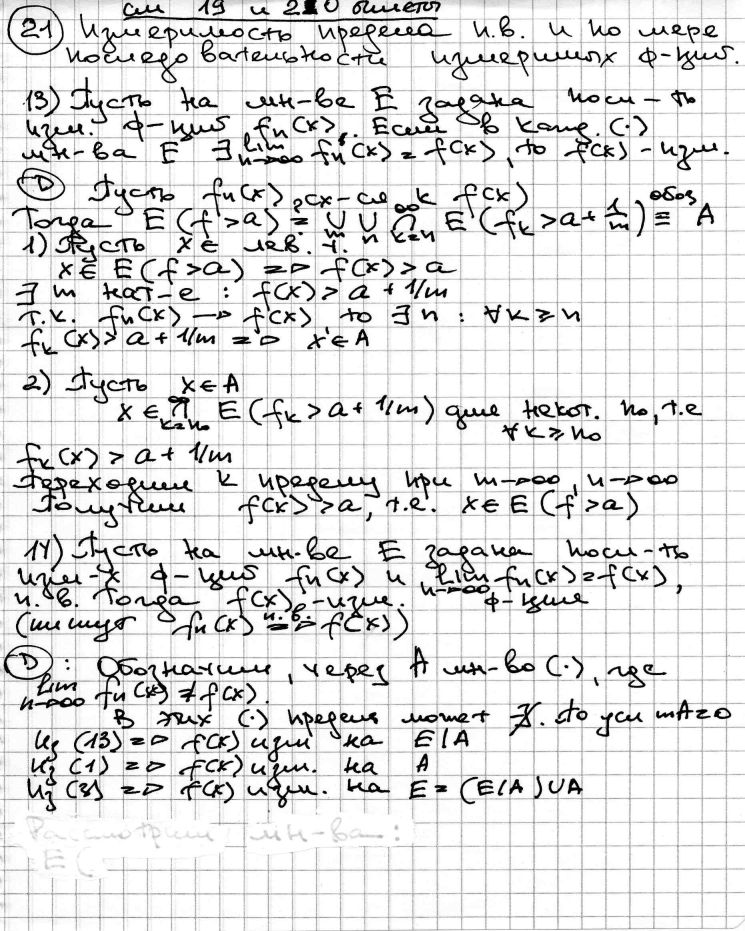 см 19 и 20 билеты
21 Измеримость предела п.в. и по мере
последовательности измеримых ф-ций.
13) Пусть на мн-ве E задана посл-ть
изм. ф-ций fn(x). Если в кажд. (·)
мн-ва E ∃ lim n→∞ fn(x) = f(x), то f(x) - изм.
D Пусть fn(x) сх-ся к f(x)
Тогда E(f>a) = ∪m ∪n ∩∞k=n E(fk>a+1/m) обоз ≡ A
1) Пусть x∈ лев. ч.
x∈ E(f>a) => f(x)>a
∃ m нат-е : f(x)>a+1/m
т.к. fn(x) → f(x) то ∃ n : ∀k≥n
fk(x)>a+1/m => x∈A
2) Пусть x∈A
x∈ ∩∞k=n0 E(fk>a+1/m) для некот. n0, т.е
∀k≥n0
fk(x)>a+1/m
Переходим к пределу при m→∞, n→∞
Получим f(x)>a, т.е. x∈E(f>a)
14) Пусть на мн-ве E задана посл-ть
изм-х ф-ций fn(x) и lim n→∞ fn(x)=f(x),
п.в. Тогда f(x) - изм. ф-ция
(пишут fn(x) п.в. => f(x))
D : Обозначим, через A мн-во (·), где
lim n→∞ fn(x) ≠ f(x).
В этих (·) предел может ∄. По усл mA=0
Из (13) => f(x) изм на E\A
Из (1) => f(x) изм. на A
Из (3) => f(x) изм. на E = (E\A)∪A
Рассмотрим мн-ва :
E (